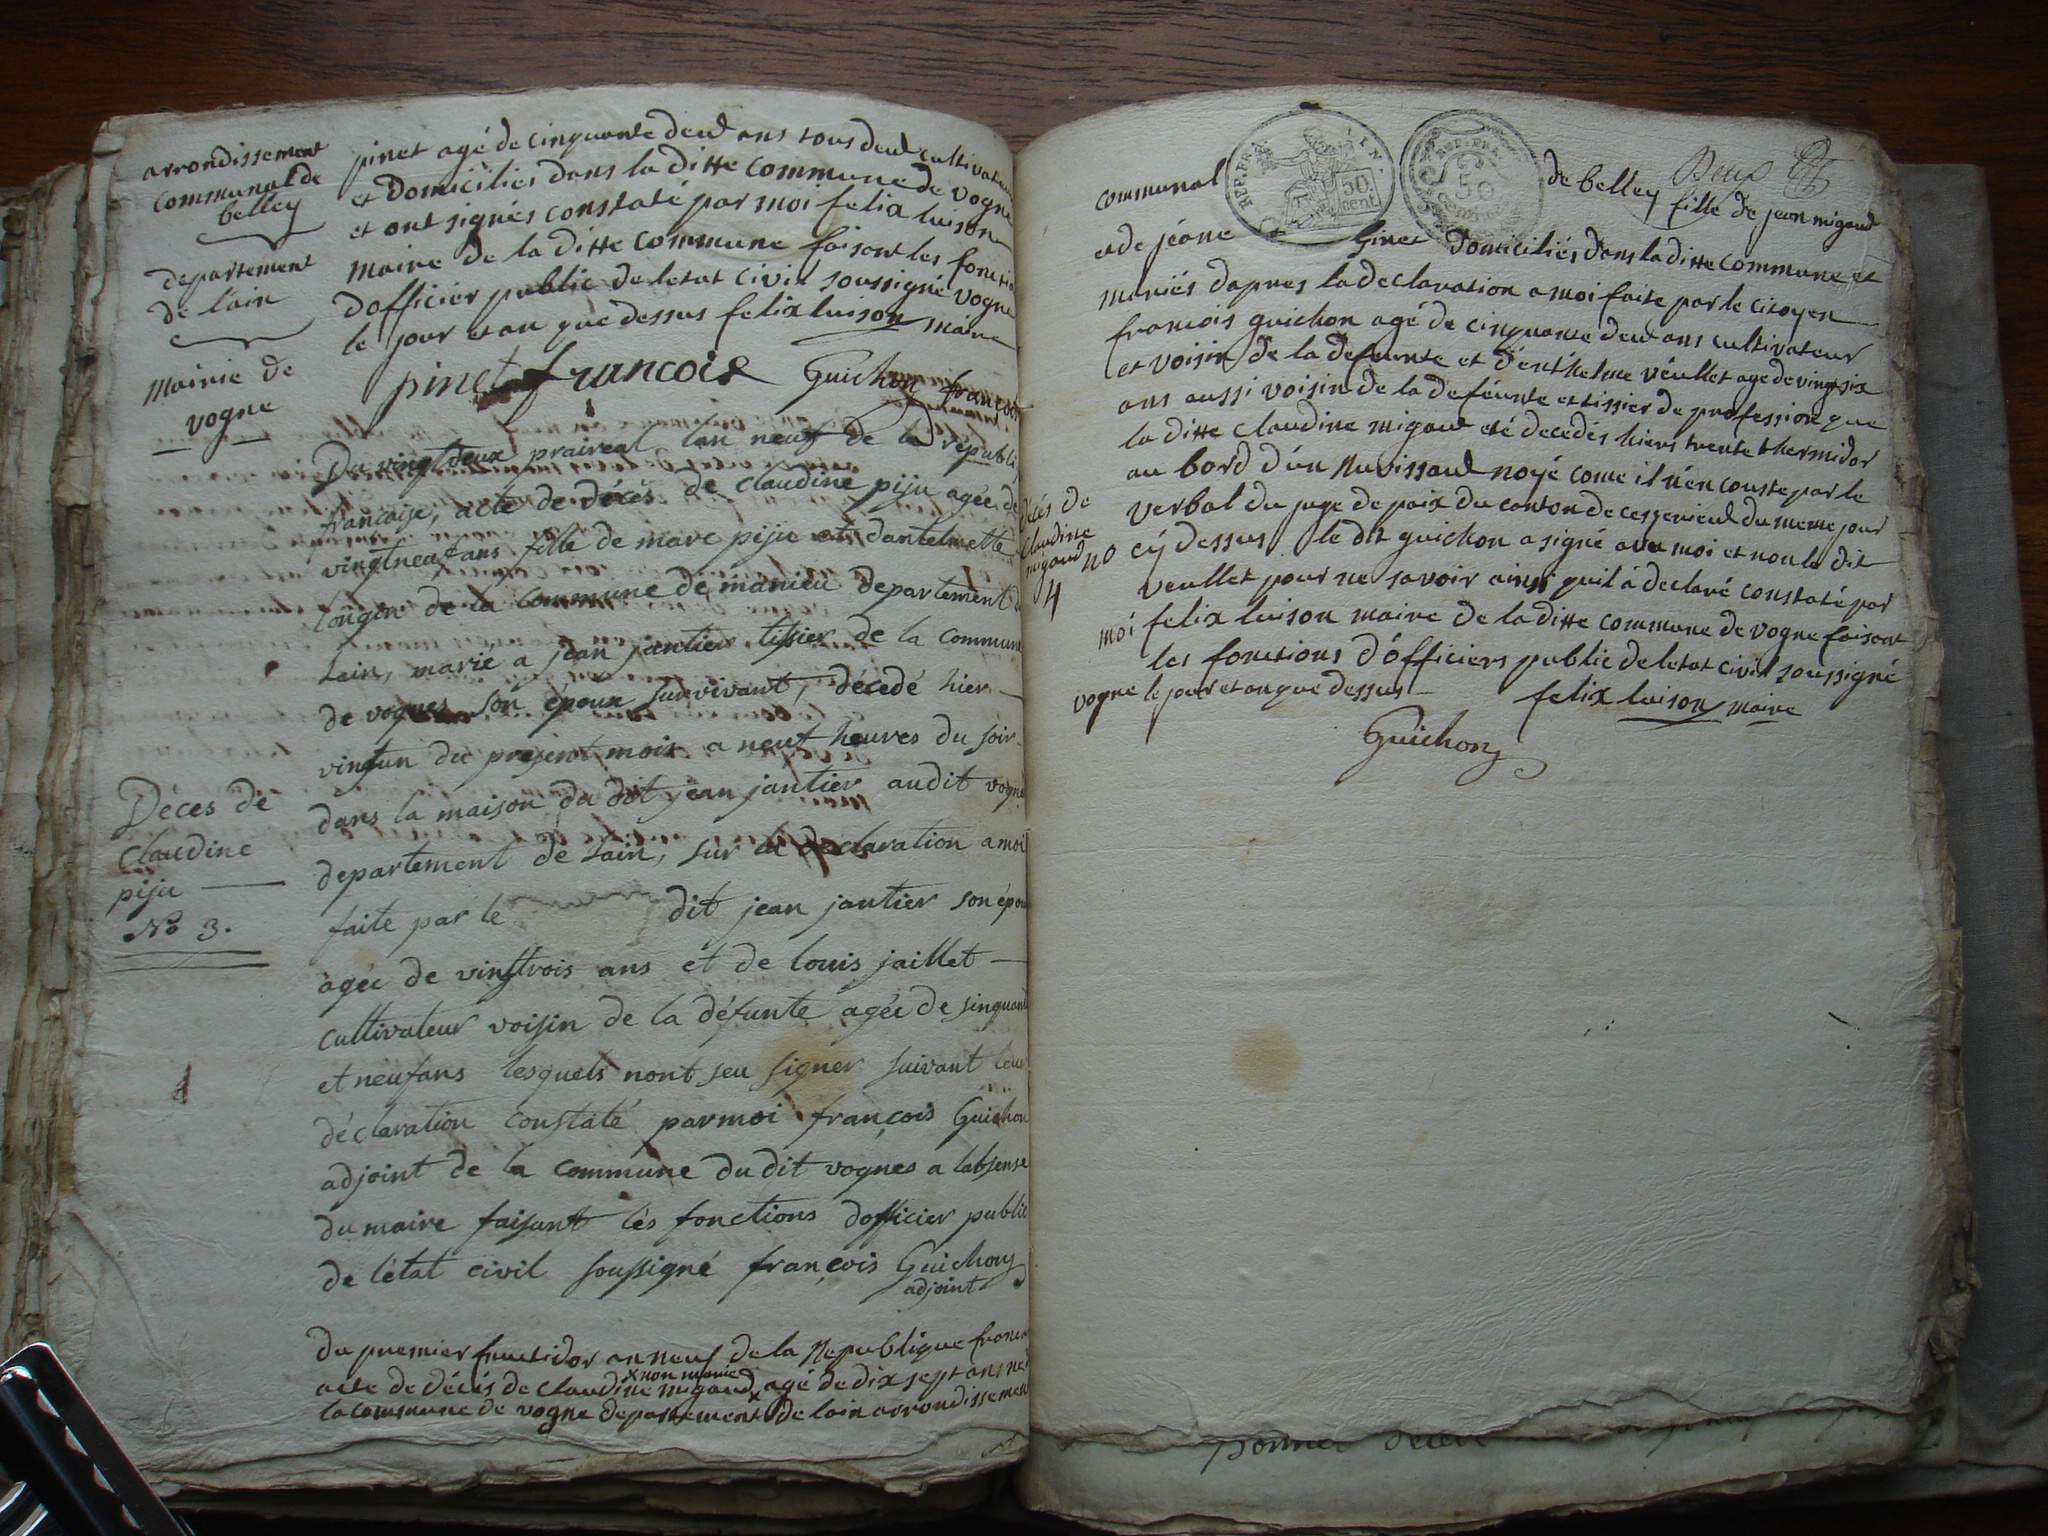 arrondissement
communal de
belley
departement
de lain
mairie de
vogne
pinet agé de cinquante deux ans tous deux cultivateur
et domiciliés dans la ditte commune de vogne
et ont signés constaté par moi felix luison
maire de la ditte commune faisant les fonctio
dofficier public de letat civil soussigné vogne
le jour et an que dessus felix luison maire
pinet francois Guichon francois
Du vingtdeux praireal lan neuf de la républi
francaise, acte de décés de claudine piju agée de
vingtneufans fille de marc piju et dantelmette
longin de la commune de manieu departement d
Lain, marié a jean jantier tissier de la commune
de vognes son époux survivant, décedé hier
vingtun du present mois a neuf heures du soir
dans la maison du dit jean jantier audit vogne
departement de Lain, sur la declaration amoi
faite par le dit jean jantier son épou
agée de vinstrois ans et de louis jaillet
cultivateur voisin de la défunte agée de sinquant
et neufans lesquels nont seu signer suivant leur
déclaration constaté parmoi françois Guichon
adjoint de la commune du dit vognes a labsense
du maire faisant les fonctions dofficier public
de létat civil soussigné françois Guichon
adjoint
Déces de
Claudine
piju
No 3.
du premier fructidor an neuf de la Republique franca
x non marié
acte de décés de claudine migaud x agé de dix sept ans né d
la commune de vogne departement de lain arrondissement
REP. FRA.
50
cent
REP. FRA.
50
communal de belley fille de jean migaud
et de jéane Ginet domiciliés dans la ditte commune et
mariés dapres la declaration a moi faite par le citoyen
francois guichon agé de cinquante deux ans cultivateur
et voisin de la defeunte et d'enthelme véullet age de vingt six
ans aussi voisin de la deféunte et tissier de profession que
la ditte claudine migaud eté decedés hiers trente thermidor
au bord d'un Ruissaud noyé come il n'en conste par le
verbal du juge de paix du canton de ceszerieux du meme jour
cÿ dessus le dit guichon a signé avec moi et non le dit
veullet pour ne savoir ainsi quil á declaré constaté par
moi felix luison maire de la ditte commune de vogne faisant
les fonctions d'officiers public de letat civil soussigné
vogne le jour et an que dessus felix luison maire
Guichon
décés de
claudine
migaud no
4